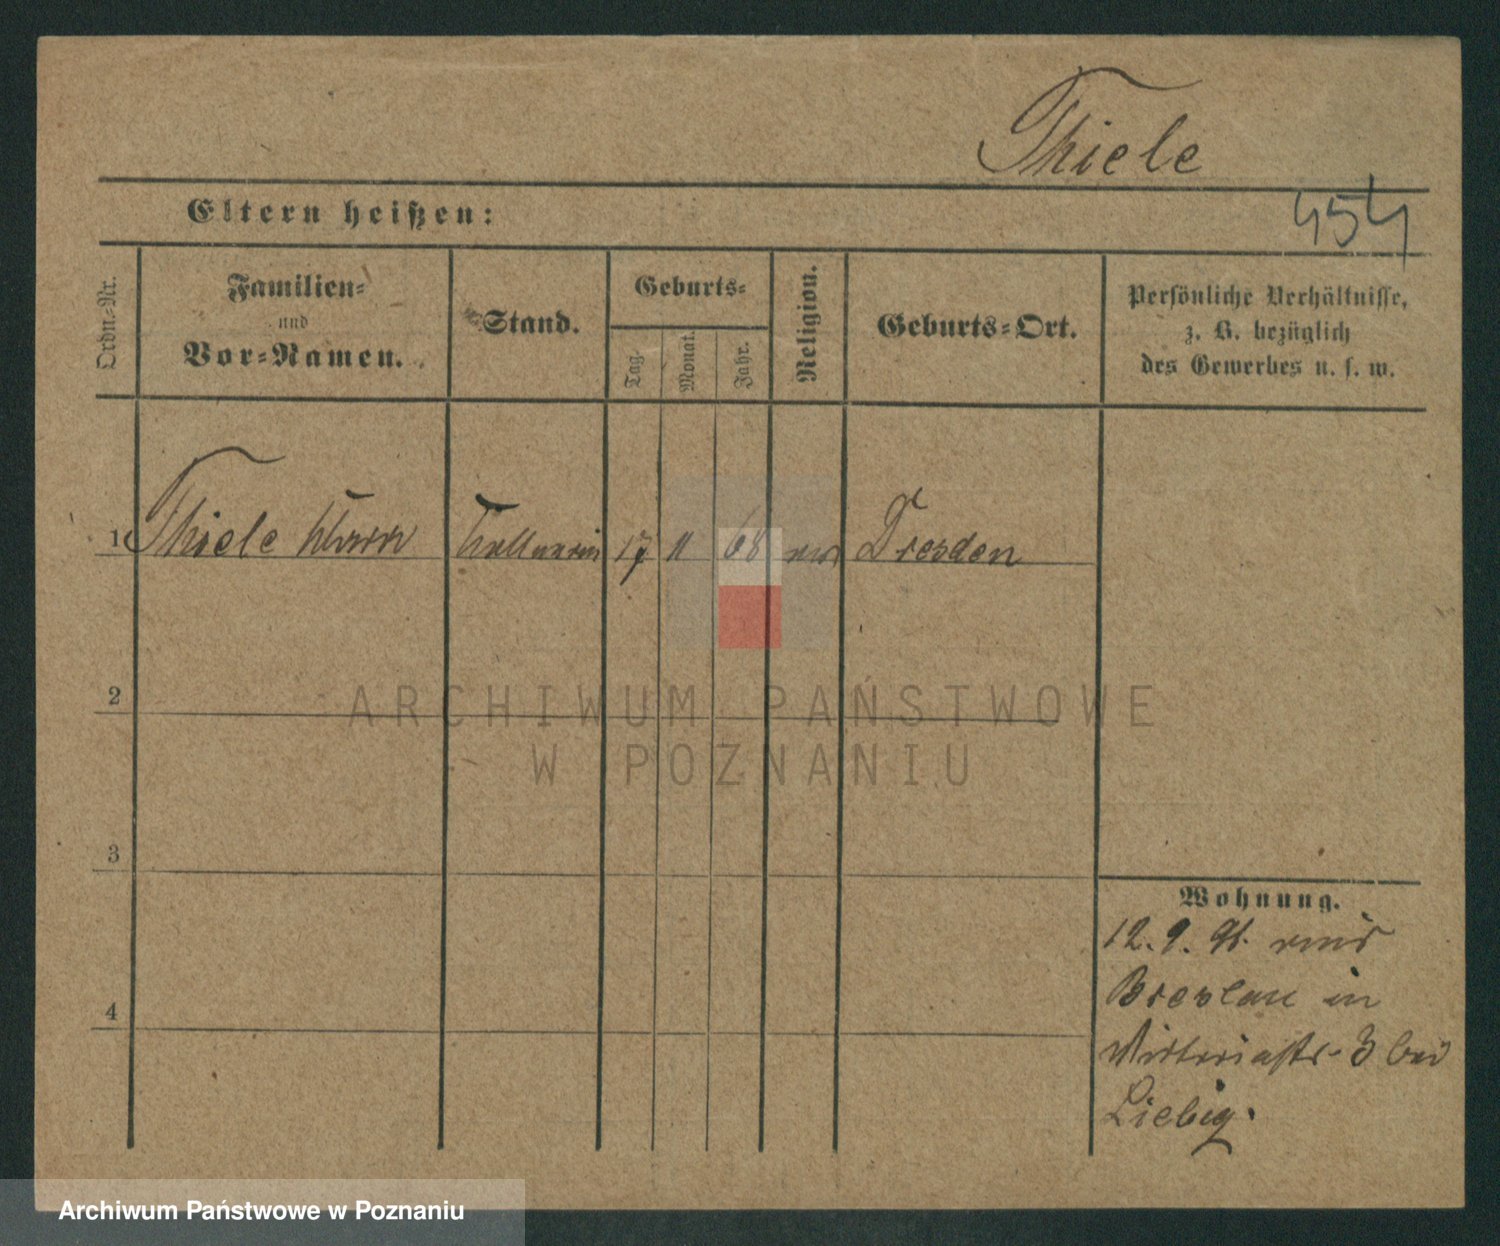 Thiele
454
Eltern heißen:
Ordn.-Nr.
Familien-
und
Vor-Namen.
Stand.
Geburts-
Tag.
Monat.
Jahr.
Religion.
Geburts-Ort.
Persönliche Verhältnisse,
z. B. bezüglich
des Gewerbes u. s. w.
1 Thiele Clara Kellnerin 17 11 68 ev Dresden
2
3
4
Wohnung.
12. 9. 91. aus
Breslau in
Victoriastr. 3 bei
Liebig.
ARCHIWUM PAŃSTWOWE
W POZNANIU
Archiwum Państwowe w Poznaniu